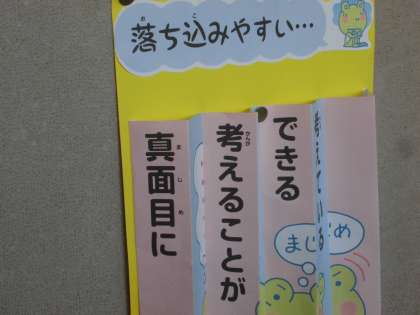 落ち込みやすい…
真面目に
考えることが
できる
考えている
まじめ